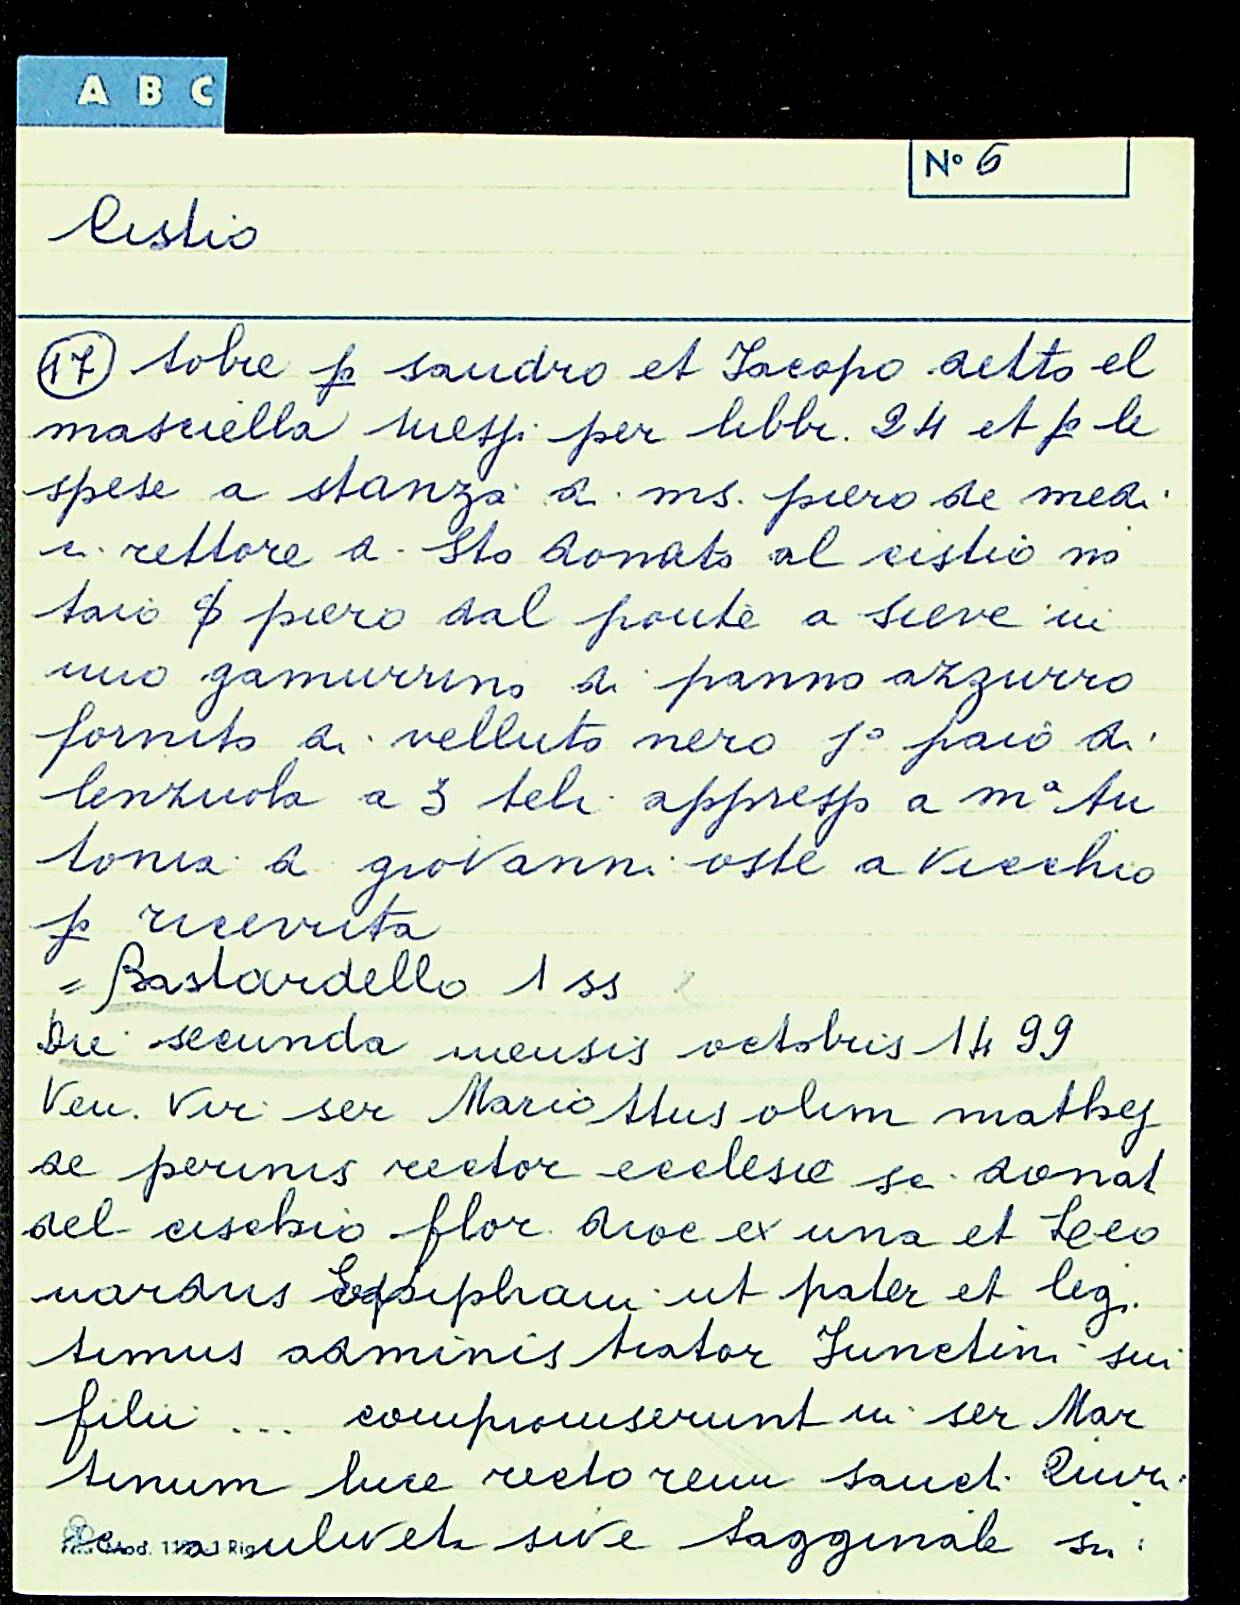 A B C
Nº 6
Cistio
17 tobre p sandro et Jacopo detto el
masciella messi per libbr. 24 et p le
spese a stanza di ms. piero de medi
ci rettore di Sto donato al cistio no
taio piero dal ponte a sieve in
uno gamurrino di panno azzurro
fornito di velluto nero 1º paio di
lenzuola a 3 teli appresso a mª An
tonia di giovanni oste a Vicchio
p ricevuta
= Bastardello 1 ss
Die secunda mensis octobris 1499
Ven. Vir ser Mariottus olim mathej
de perinis rector ecclesie sci donat
del cischio flor. dioc ex una et Leo
nardus Epiphani ut pater et legi
timus administrator Junctini sui
filii ... compromiserunt in ser Mar
tinum luce rectorem sancti Quiri
ci a uliveta sive Sagginale su
Mod. 1 Rig